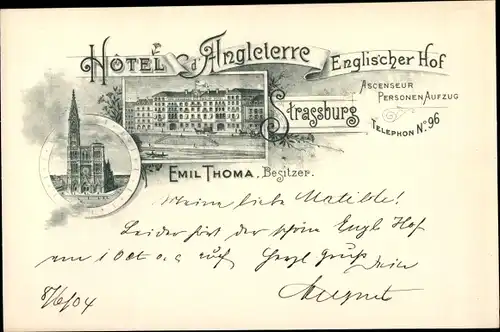 HÔTEL d'Angleterre
Englischer Hof
Strassburg
ASCENSEUR
PERSONENAUFZUG
TELEPHON No. 96
EMIL THOMA, Besitzer.
Meine liebe Matilde!
Leider hört der schöne Engl Hof
am 1 Oct a. c. auf Herzl Gruß Dein
August
8/6/04